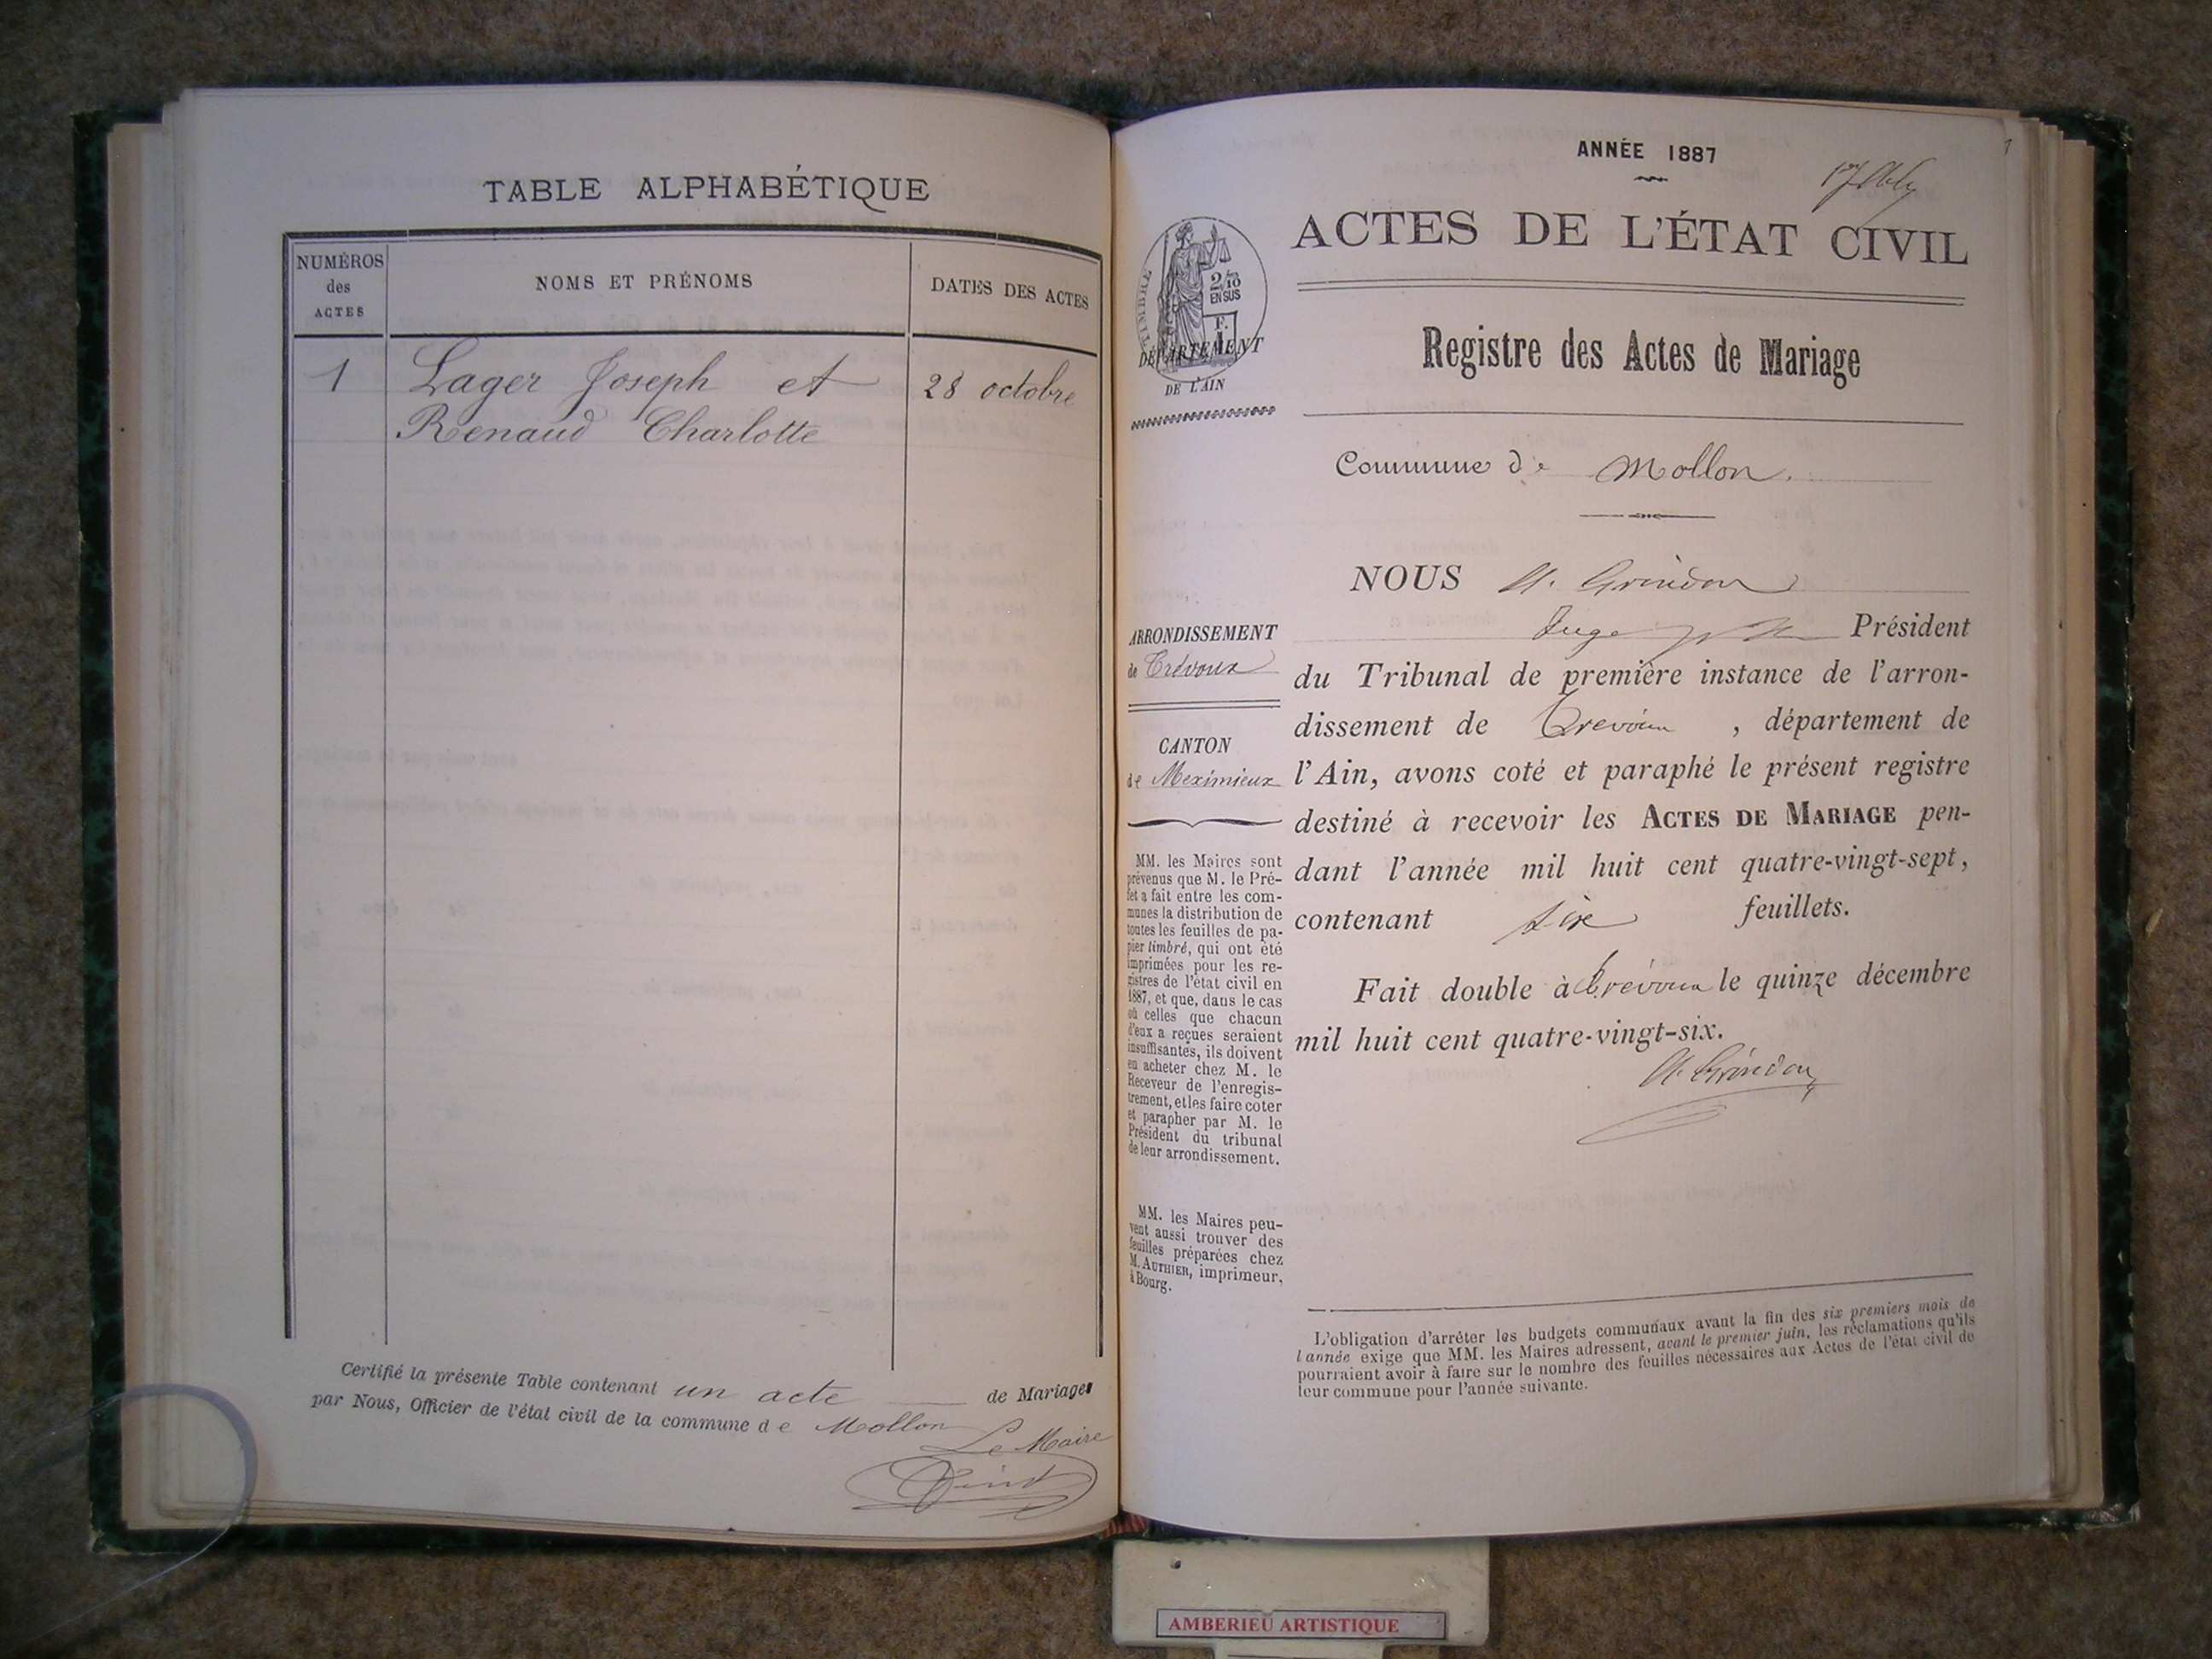 TABLE ALPHABÉTIQUE
NUMÉROS
des
ACTES
NOMS ET PRÉNOMS
DATES DES ACTES
1
Lager Joseph et
28 octobre
Renaud Charlotte
Certifié la présente Table contenant un acte de Mariage
par Nous, Officier de l'état civil de la commune de Mollon
Le Maire
ANNÉE 1887
ACTES DE L'ÉTAT CIVIL
TIMBRE
2/10
EN SUS
F.
1
DÉPARTEMENT
DE L'AIN
Registre des Actes de Mariage
Commune de Mollon.
ARRONDISSEMENT
de Trévoux
CANTON
de Meximieux
MM. les Maires sont
prévenus que M. le Pré-
fet a fait entre les com-
munes la distribution de
toutes les feuilles de pa-
pier timbré, qui ont été
imprimées pour les re-
gistres de l'état civil en
1887, et que, dans le cas
où celles que chacun
d'eux a reçues seraient
insuffisantes, ils doivent
en acheter chez M. le
Receveur de l'enregis-
trement, et les faire coter
et parapher par M. le
Président du tribunal
de leur arrondissement.
MM. les Maires peu-
vent aussi trouver des
feuilles préparées chez
M. AUTHIER, imprimeur,
à Bourg.
NOUS A. Grindon
Juge Président
du Tribunal de première instance de l'arron-
dissement de Trévoux, département de
l'Ain, avons coté et paraphé le présent registre
destiné à recevoir les ACTES DE MARIAGE pen-
dant l'année mil huit cent quatre-vingt-sept,
contenant six feuillets.
Fait double à Trévoux le quinze décembre
mil huit cent quatre-vingt-six.
A. Grindon
L'obligation d'arrêter les budgets communaux avant la fin des six premiers mois de
l'année exige que MM. les Maires adressent, avant le premier juin, les réclamations qu'ils
pourraient avoir à faire sur le nombre des feuilles nécessaires aux Actes de l'état civil de
leur commune pour l'année suivante.
AMBERIEU ARTISTIQUE